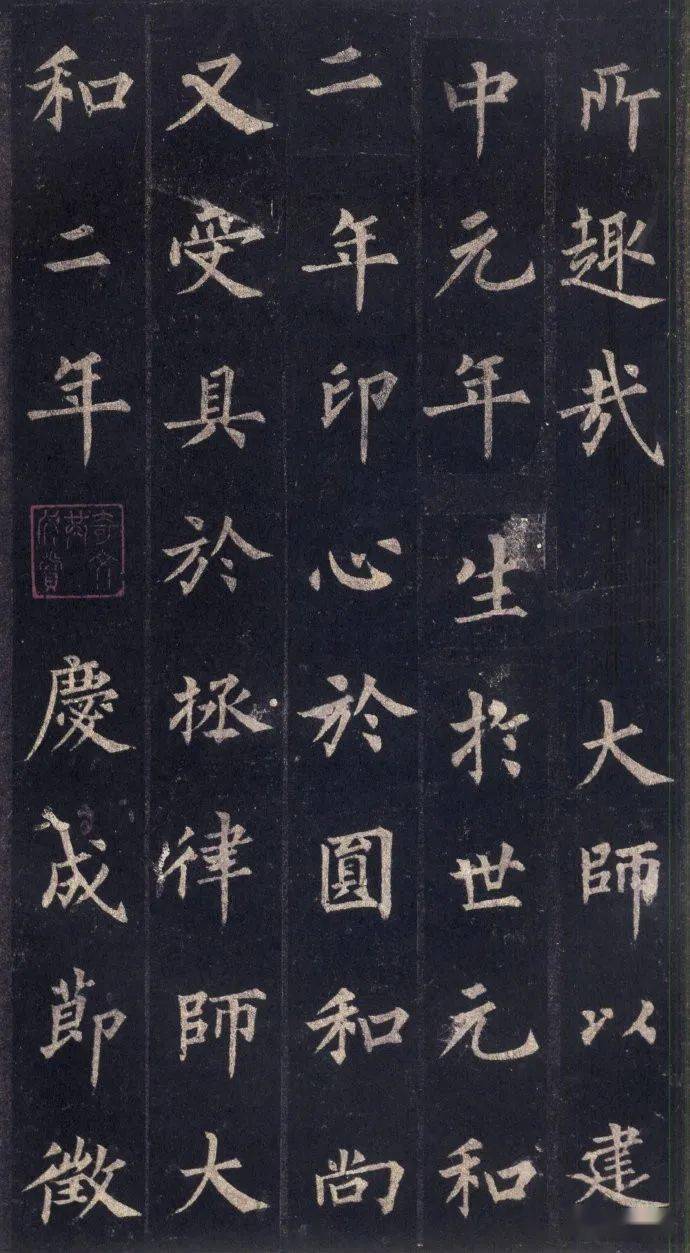 所趣哉大師以建
中元年生於世元和
二年印心於圓和尚
又受具於拯律師大
和二年慶成節徵
奇文共欣賞